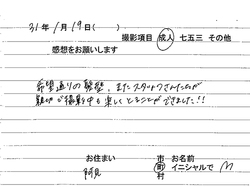 31年1月19日( )
撮影項目 成人 七五三 その他
感想をお願いします
希望通りの髪型、またスタッフさんたちが
親切で撮影中も楽しくとることができました!!
お住まい 市 お名前
阿見 町 イニシャルで M
村